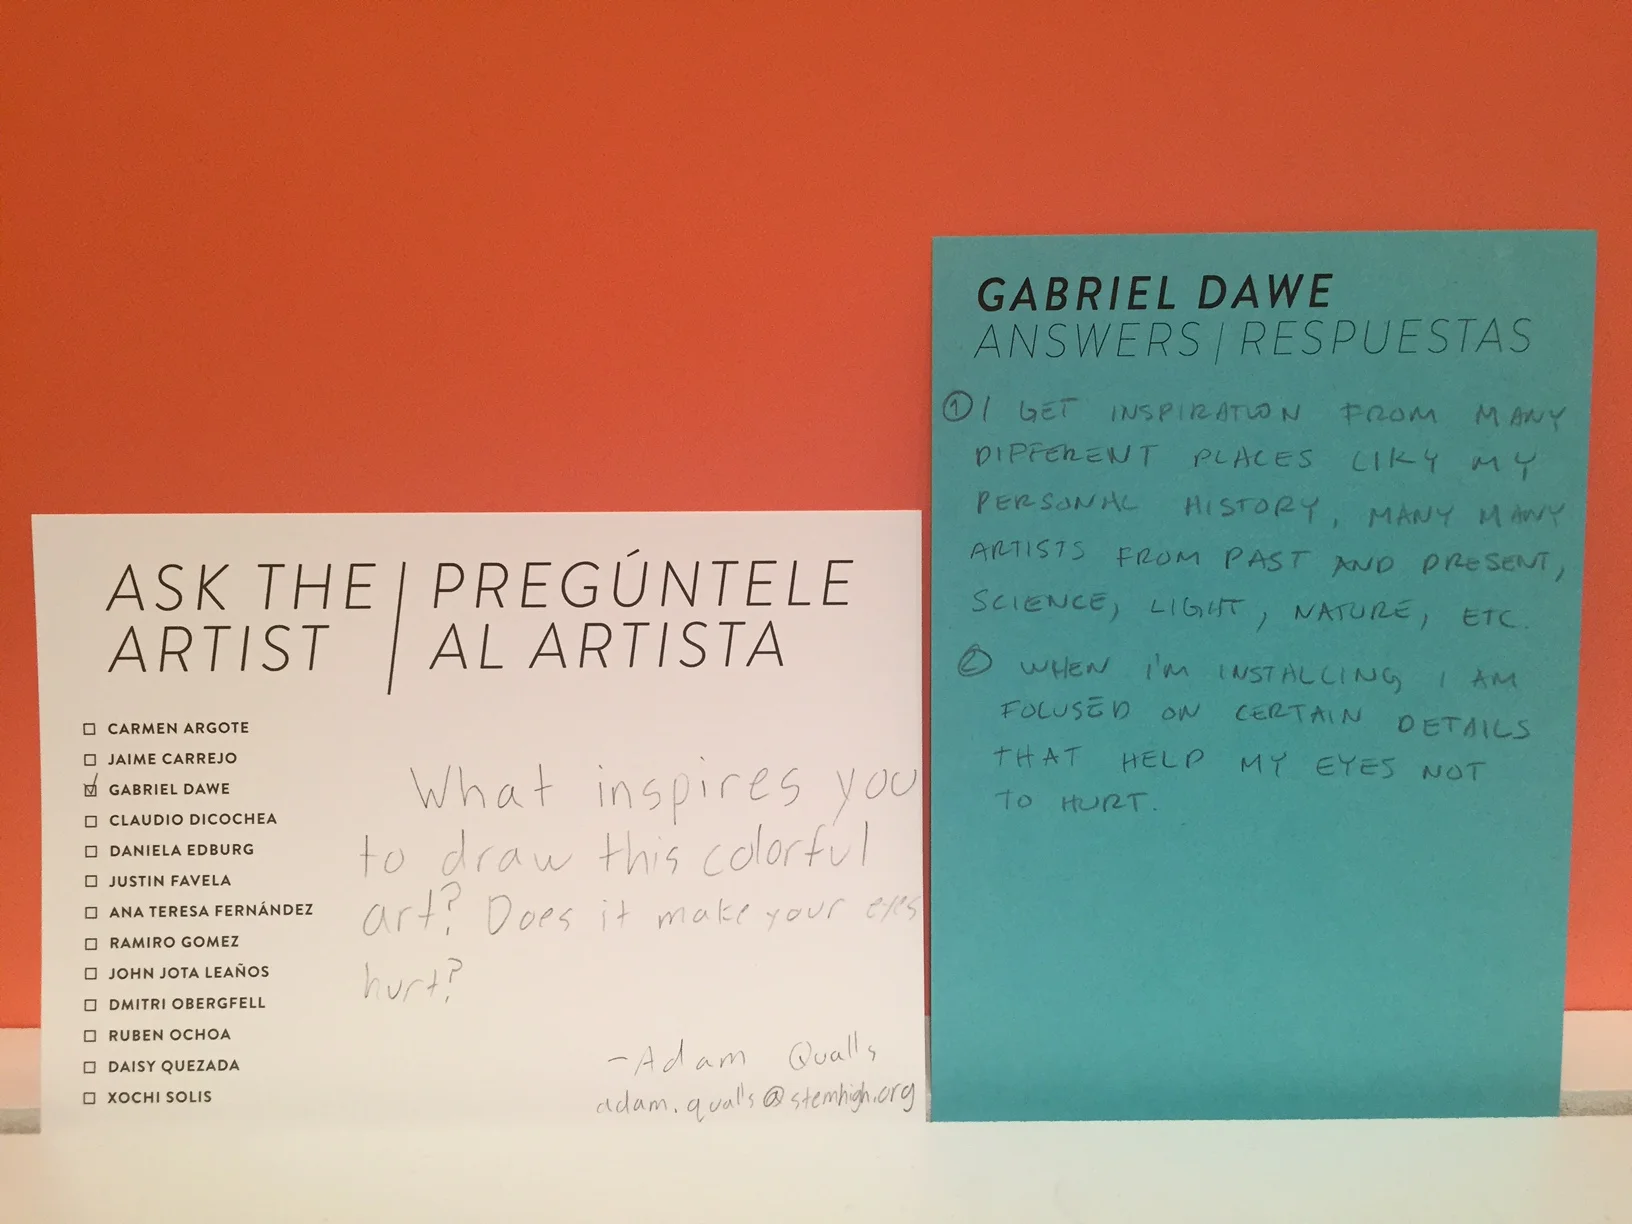 ASK THE ARTIST | PREGÚNTELE AL ARTISTA
CARMEN ARGOTE
JAIME CARREJO
GABRIEL DAWE
CLAUDIO DICOCHEA
DANIELA EDBURG
JUSTIN FAVELA
ANA TERESA FERNÁNDEZ
RAMIRO GOMEZ
JOHN JOTA LEAÑOS
DMITRI OBERGFELL
RUBEN OCHOA
DAISY QUEZADA
XOCHI SOLIS
What inspires you
to draw this colorful
art? Does it make your eyes
hurt?
-Adam Qualls
adam.qualls@stemhigh.org
GABRIEL DAWE
ANSWERS | RESPUESTAS
① I GET INSPIRATION FROM MANY
DIFFERENT PLACES LIKY MY
PERSONAL HISTORY, MANY MANY
ARTISTS FROM PAST AND PRESENT,
SCIENCE, LIGHT, NATURE, ETC.
② WHEN I'M INSTALLING I AM
FOCUSED ON CERTAIN DETAILS
THAT HELP MY EYES NOT
TO HURT.